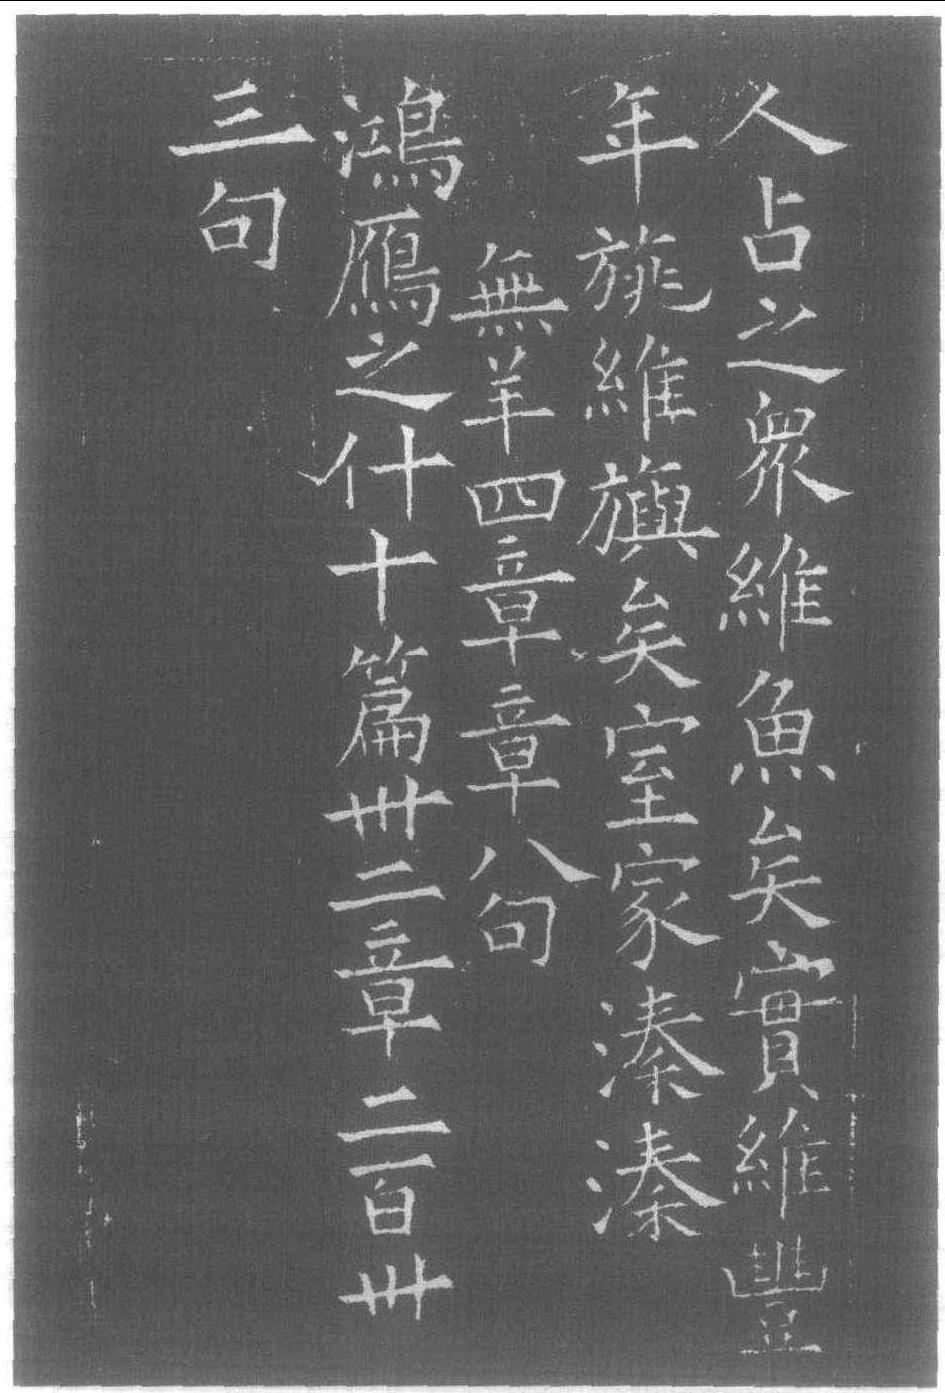 人占之衆維魚矣實維豐
年旐維旟矣室家溱溱
無羊四章章八句
鴻鴈之什十篇卅二章二百卅
三句